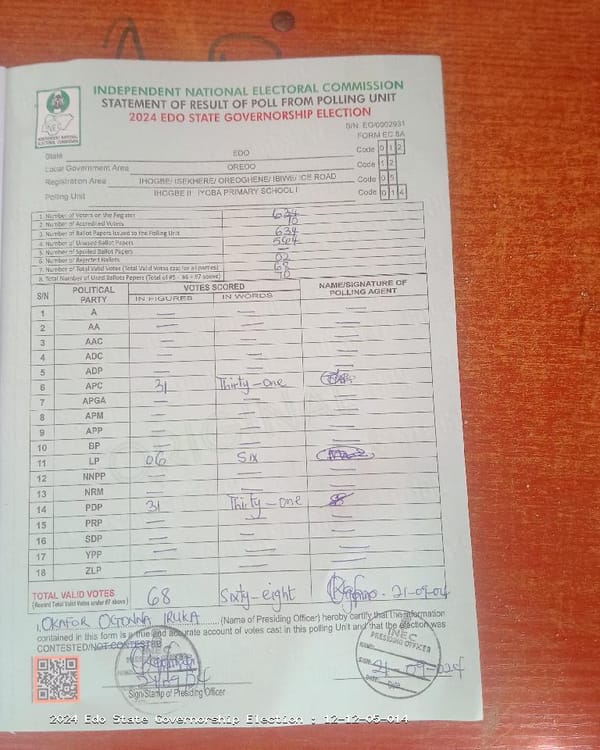 INDEPENDENT NATIONAL ELECTORAL COMMISSION
STATEMENT OF RESULT OF POLL FROM POLLING UNIT
2024 EDO STATE GOVERNORSHIP ELECTION
INEC
INDEPENDENT NATIONAL ELECTORAL COMMISSION
S/N: EG/0002931
FORM EC 8A
State EDO Code 0 1 2
Local Government Area OREDO Code 1 2
Registration Area IHOGBE/ ISEKHERE/ OREOGHENE/ IBIWE/ ICE ROAD Code 0 5
Polling Unit IHOGBE II IYOBA PRIMARY SCHOOL I Code 0 1 4
1. Number of Voters on the Register 634
2. Number of Accredited Voters 70
3. Number of Ballot Papers Issued to the Polling Unit 634
4. Number of Unused Ballot Papers 564
5. Number of Spoiled Ballot Papers
6. Number of Rejected Ballots 02
7. Number of Total Valid Votes (Total Valid Votes cast for all parties) 68
8. Total Number of Used Ballots Papers (Total of #5 + #6 + #7 above) 70
S/N POLITICAL PARTY VOTES SCORED NAME/SIGNATURE OF POLLING AGENT
IN FIGURES IN WORDS
1 A
2 AA
3 AAC
4 ADC
5 ADP
6 APC 31 Thirty-one
7 APGA
8 APM
9 APP
10 BP
11 LP 06 Six
12 NNPP
13 NRM
14 PDP 31 Thirty-one
15 PRP
16 SDP
17 YPP
18 ZLP
TOTAL VALID VOTES 68 Sixty-eight 21-09-04
(Record Total Valid Votes under #7 above)
I, OKAFOR OGONNA IRUKA (Name of Presiding Officer) hereby certify that the information
contained in this form is a true and accurate account of votes cast in this polling Unit and that the election was
CONTESTED/NOT CONTESTED
INEC
PRESIDING OFFICER
NAME
SIGN
21-09-024
DATE
Sign/Stamp of Presiding Officer
2024 Edo State Governorship Election : 12-12-05-014